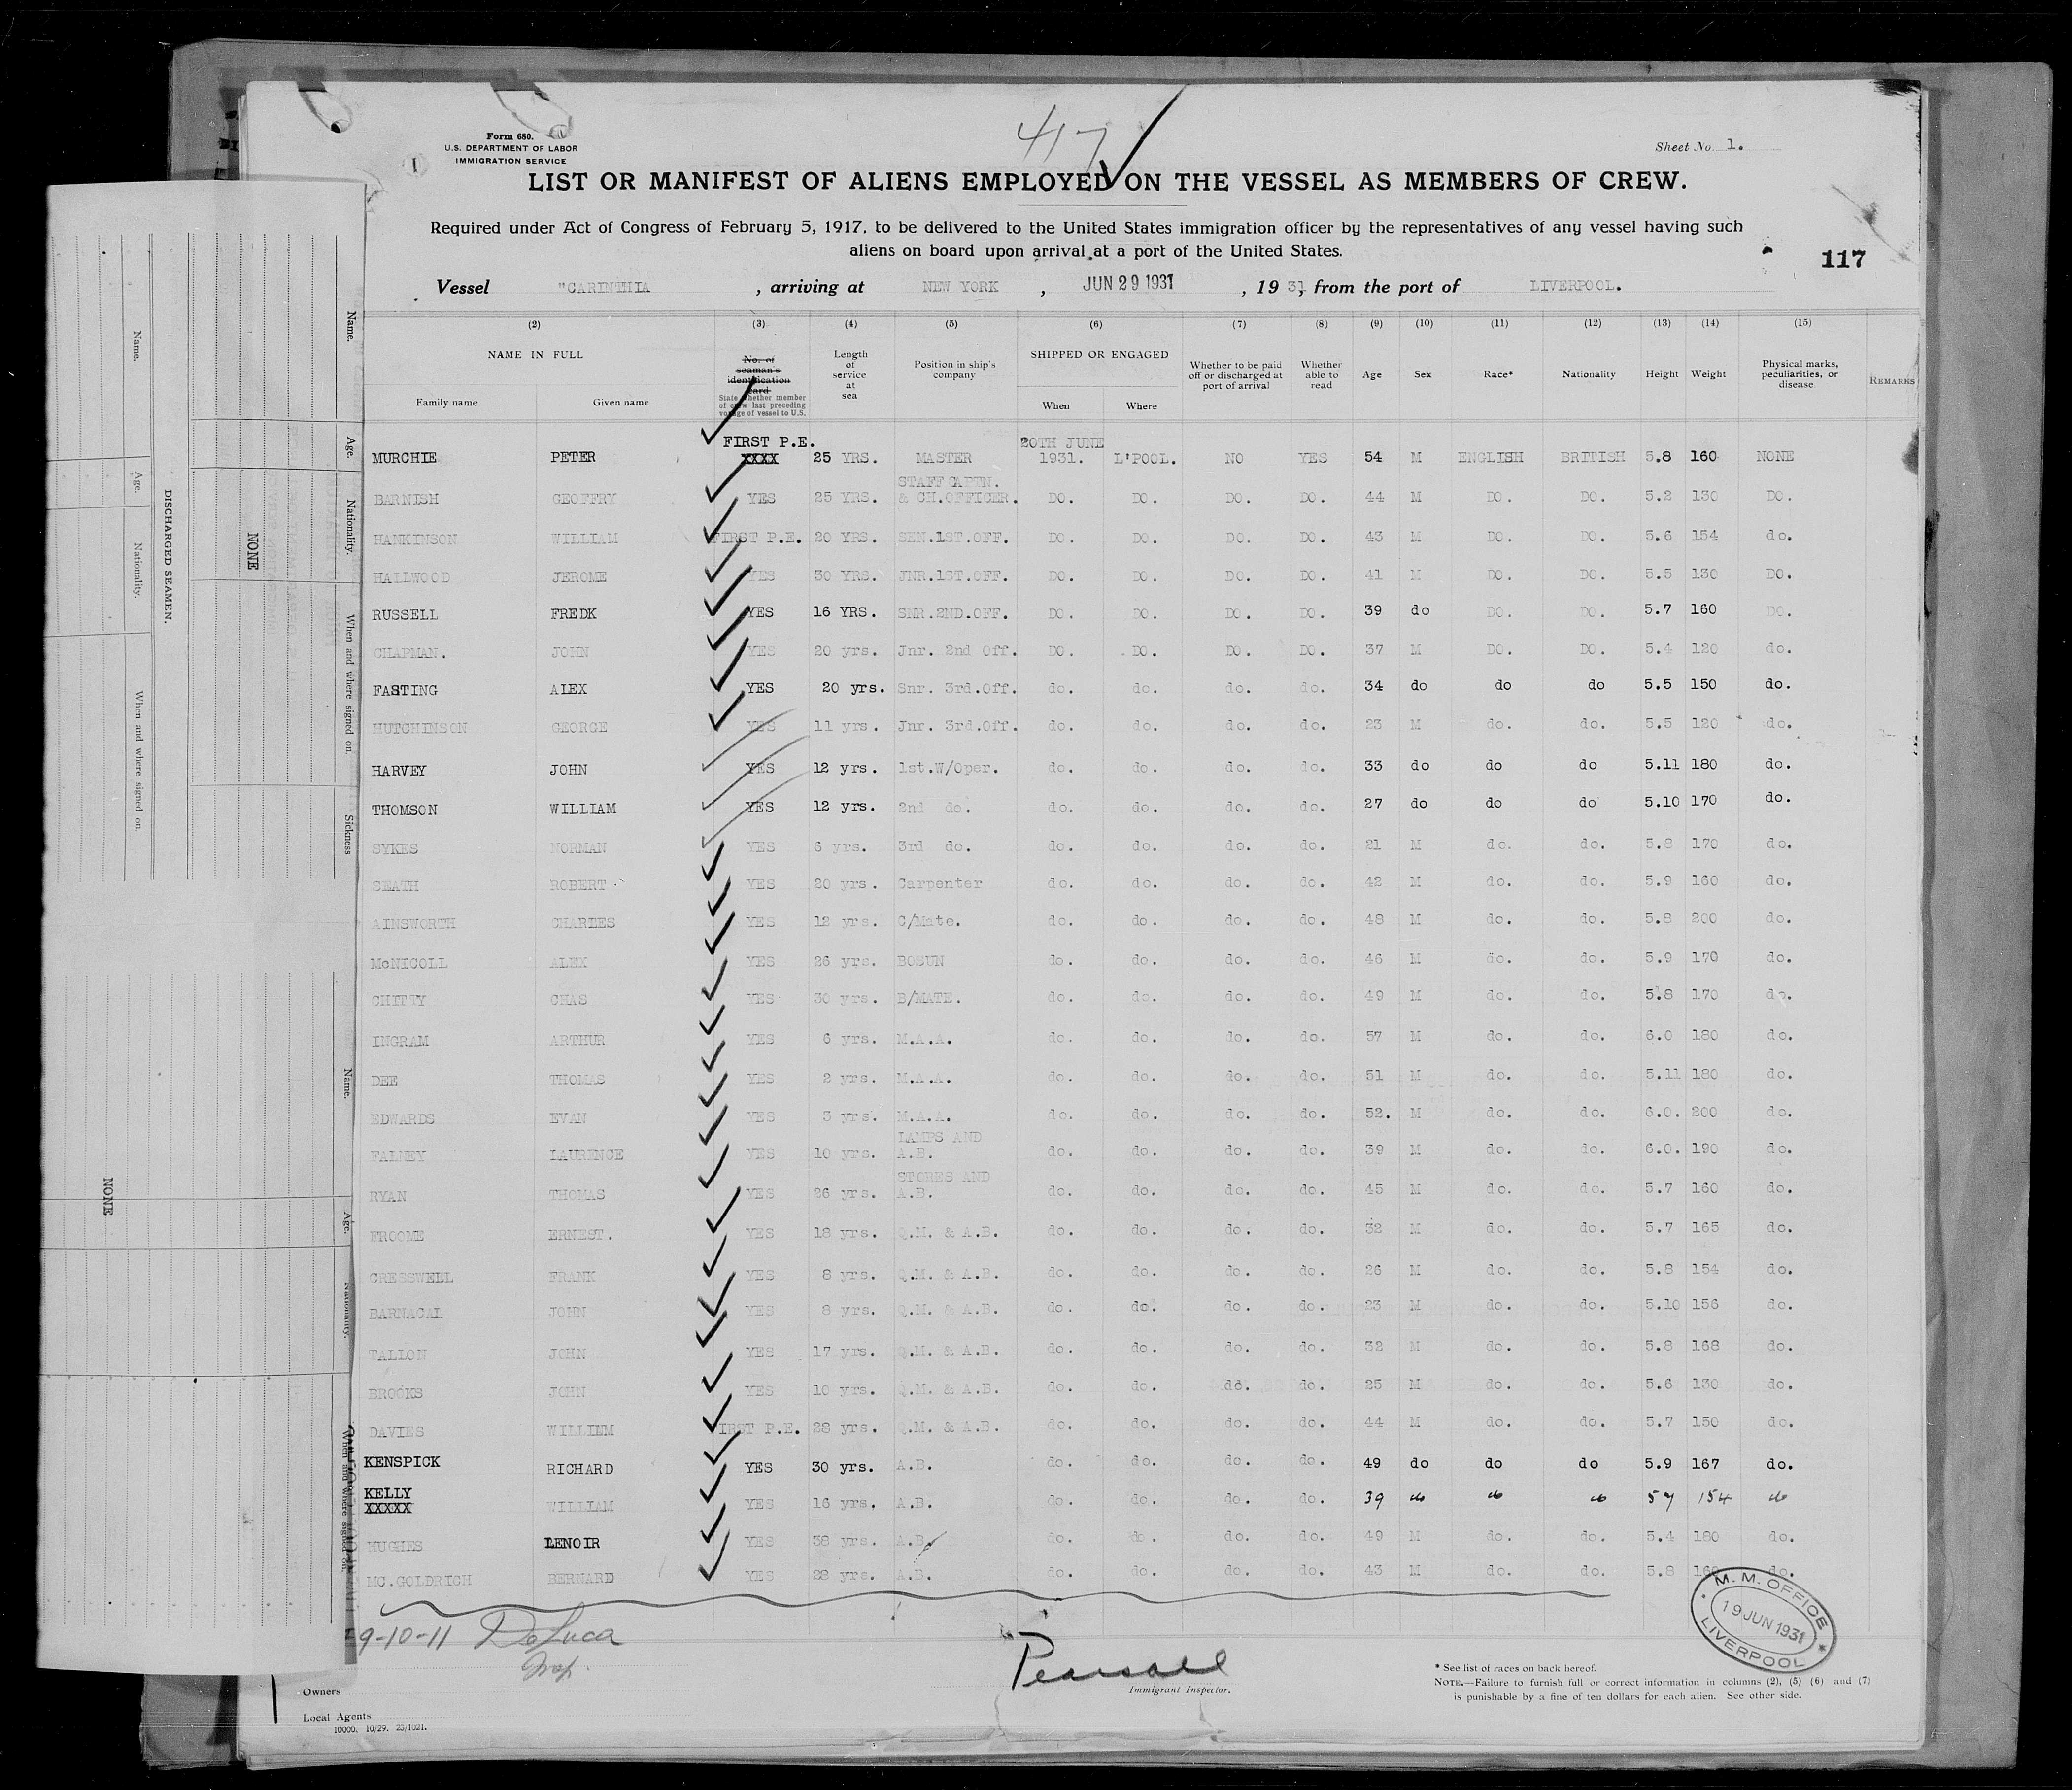 417
Form 680.
U.S. DEPARTMENT OF LABOR
IMMIGRATION SERVICE
Sheet No. 1.
LIST OR MANIFEST OF ALIENS EMPLOYED ON THE VESSEL AS MEMBERS OF CREW.
Required under Act of Congress of February 5, 1917, to be delivered to the United States immigration officer by the representatives of any vessel having such
aliens on board upon arrival at a port of the United States.
117
Vessel "CARINTHIA , arriving at NEW YORK , JUN 29 1931 , 19 31, from the port of LIVERPOOL.
(2) (3) (4) (5) (6) (7) (8) (9) (10) (11) (12) (13) (14) (15)
NAME IN FULL
Family name Given name
No. of seaman's identification card
State whether member of crew last preceding voyage of vessel to U.S.
Length of service at sea
Position in ship's company
SHIPPED OR ENGAGED
When Where
Whether to be paid off or discharged at port of arrival
Whether able to read
Age Sex Race* Nationality Height Weight
Physical marks, peculiarities, or disease
REMARKS
MURCHIE PETER FIRST P.E. XXXX 25 YRS. MASTER 20TH JUNE 1931. L'POOL. NO YES 54 M ENGLISH BRITISH 5.8 160 NONE
BARNISH GEOFFRY YES 25 YRS. STAFF CAPTN. & CH.OFFICER. DO. DO. DO. DO. 44 M DO. DO. 5.2 130 DO.
HANKINSON WILLIAM FIRST P.E. 20 YRS. SEN.1ST.OFF. DO. DO. DO. DO. 43 M DO. DO. 5.6 154 do.
HALLWOOD JEROME YES 30 YRS. JNR.1ST.OFF. DO. DO. DO. DO. 41 M DO. DO. 5.5 130 DO.
RUSSELL FREDK YES 16 YRS. SNR.2ND.OFF. DO. DO. DO. DO. 39 do DO. DO. 5.7 160 DO.
CHAPMAN. JOHN YES 20 yrs. Jnr. 2nd Off. DO. DO. DO. DO. 37 M DO. DO. 5.4 120 do.
FASTING ALEX YES 20 yrs. Snr. 3rd.Off. do. do. do. do. 34 do do do 5.5 150 do.
HUTCHINSON GEORGE YES 11 yrs. Jnr. 3rd.Off. do. do. do. do. 23 M do. do. 5.5 120 do.
HARVEY JOHN YES 12 yrs. 1st.W/Oper. do. do. do. do. 33 do do do 5.11 180 do.
THOMSON WILLIAM YES 12 yrs. 2nd do. do. do. do. do. 27 do do do 5.10 170 do.
SYKES NORMAN YES 6 yrs. 3rd do. do. do. do. do. 21 M do. do. 5.8 170 do.
SEATH ROBERT YES 20 yrs. Carpenter do. do. do. do. 42 M do. do. 5.9 160 do.
AINSWORTH CHARLES YES 12 yrs. C/Mate. do. do. do. do. 48 M do. do. 5.8 200 do.
McNICOLL ALEX YES 26 yrs. BOSUN do. do. do. do. 46 M do. do. 5.9 170 do.
CHITTY CHAS YES 30 yrs. B/MATE. do. do. do. do. 49 M do. do. 5.8 170 do.
INGRAM ARTHUR YES 6 yrs. M.A.A. do. do. do. do. 57 M do. do. 6.0 180 do.
DEE THOMAS YES 2 yrs. M.A.A. do. do. do. do. 51 M do. do. 5.11 180 do.
EDWARDS EVAN YES 3 yrs. M.A.A. do. do. do. do. 52. M do. do. 6.0. 200 do.
FALNEY LAURENCE YES 10 yrs. LAMPS AND A.B. do. do. do. do. 39 M do. do. 6.0. 190 do.
RYAN THOMAS YES 26 yrs. STORES AND A.B. do. do. do. do. 45 M do. do. 5.7 160 do.
FROOME ERNEST. YES 18 yrs. Q.M. & A.B. do. do. do. do. 32 M do. do. 5.7 165 do.
CRESSWELL FRANK YES 8 yrs. Q.M. & A.B. do. do. do. do. 26 M do. do. 5.8 154 do.
BARNACAL JOHN YES 8 yrs. Q.M. & A.B. do. do. do. do. 23 M do. do. 5.10 156 do.
TALLON JOHN YES 17 yrs. Q.M. & A.B. do. do. do. do. 32 M do. do. 5.8 168 do.
BROOKS JOHN YES 10 yrs. Q.M. & A.B. do. do. do. do. 25 M do. do. 5.6 130 do.
DAVIES FIRST P.E. 28 yrs. Q.M. & A.B. do. do. do. do. 44 M do. do. 5.7 150 do.
KENSPICK RICHARD YES 30 yrs. A.B. do. do. do. do. 49 do do do 5.9 167 do.
KELLY XXXXX WILLIAM YES 16 yrs. A.B. do. do. do. do. 39 do do do 5 7 154 do
HUGHES LENOIR YES 38 yrs. A.B. do. do. do. do. 49 M do. do. 5.4 180 do.
MC.GOLDRICH BERNARD YES 28 yrs. A.B. do. do. do. do. 43 M do. do. 5.8 160 do.
9-10-11 DeLuca
Insp.
Pearsall
Immigrant Inspector.
M. M. OFFICE
19 JUN 1931
LIVERPOOL
* See list of races on back hereof.
NOTE.—Failure to furnish full or correct information in columns (2), (5) (6) and (7)
is punishable by a fine of ten dollars for each alien. See other side.
Owners
Local Agents
10000. 10/29. 23/1021.
DISCHARGED SEAMEN.
Name. Age. Nationality. When and where signed on.
NONE
Name. Age. Nationality. When and where signed on. Sickness
NONE
Name. Age. Nationality. When and where signed on.